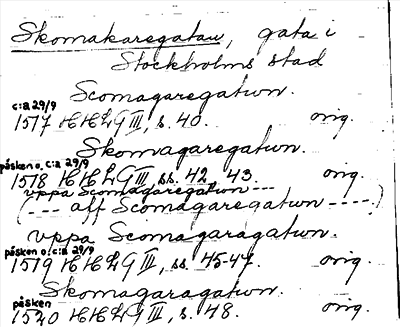 Skomakaregatan, gata i
Stockholms stad
Scomagaregatwn.
c:a 29/9
1517 HHLG III, s. 40. orig.
Skomagaregatwn.
påsken o. c:a 29/9
1518 HHLG III, ss. 42, 43. orig.
vppa Scomagaregatwn ---
(--- aff Scomagaregatwn -----)
vppa Scomagaragatwn.
påsken o. c:a 29/9
1519 HHLG III, ss. 45-47. orig.
Skomagaragatwn.
påsken
1520 HHLG III, s. 48. orig.